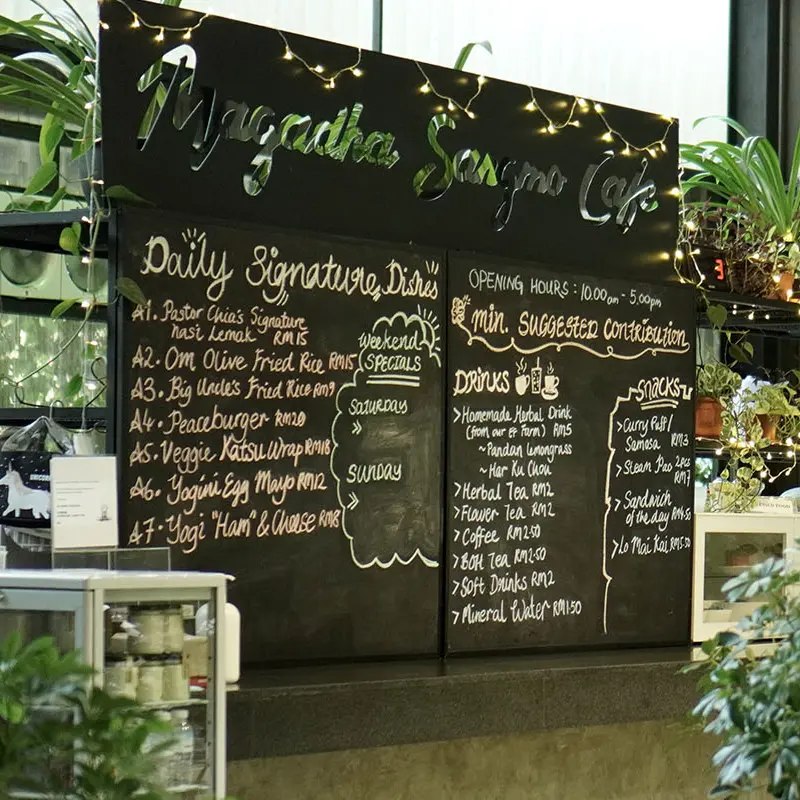 Magadha Sangmo Cafe
Daily Signature Dishes
A1. Pastor Chia's Signature
nasi Lemak RM15
A2. Om Olive Fried Rice RM15
A3. Big Uncle's Fried Rice RM9
A4. Peaceburger RM20
A5. Veggie Katsu Wrap RM18
A6. Yogini Egg Mayo RM12
A7. Yogi "Ham" & Cheese RM18
Weekend
SPECIALS
SATURDAY
>>
SUNDAY
>>
OPENING HOURS : 10.00am - 5.00pm
min. SUGGESTED CONTRIBUTION
DRINKS
> Homemade Herbal Drink
(from our Farm) RM5
~ Pandan Lemongrass
~ Har Ku Chou
> Herbal Tea RM2
> Flower Tea RM2
> Coffee RM2.50
> BOH Tea RM2.50
> Soft Drinks RM2
> Mineral Water RM1.50
SNACKS
> Curry Puff/
Samosa RM3
> Steam Pao 2pcs
RM7
> Sandwich
of the day RM4.50
> Lo Mai Kai RM5.50
3